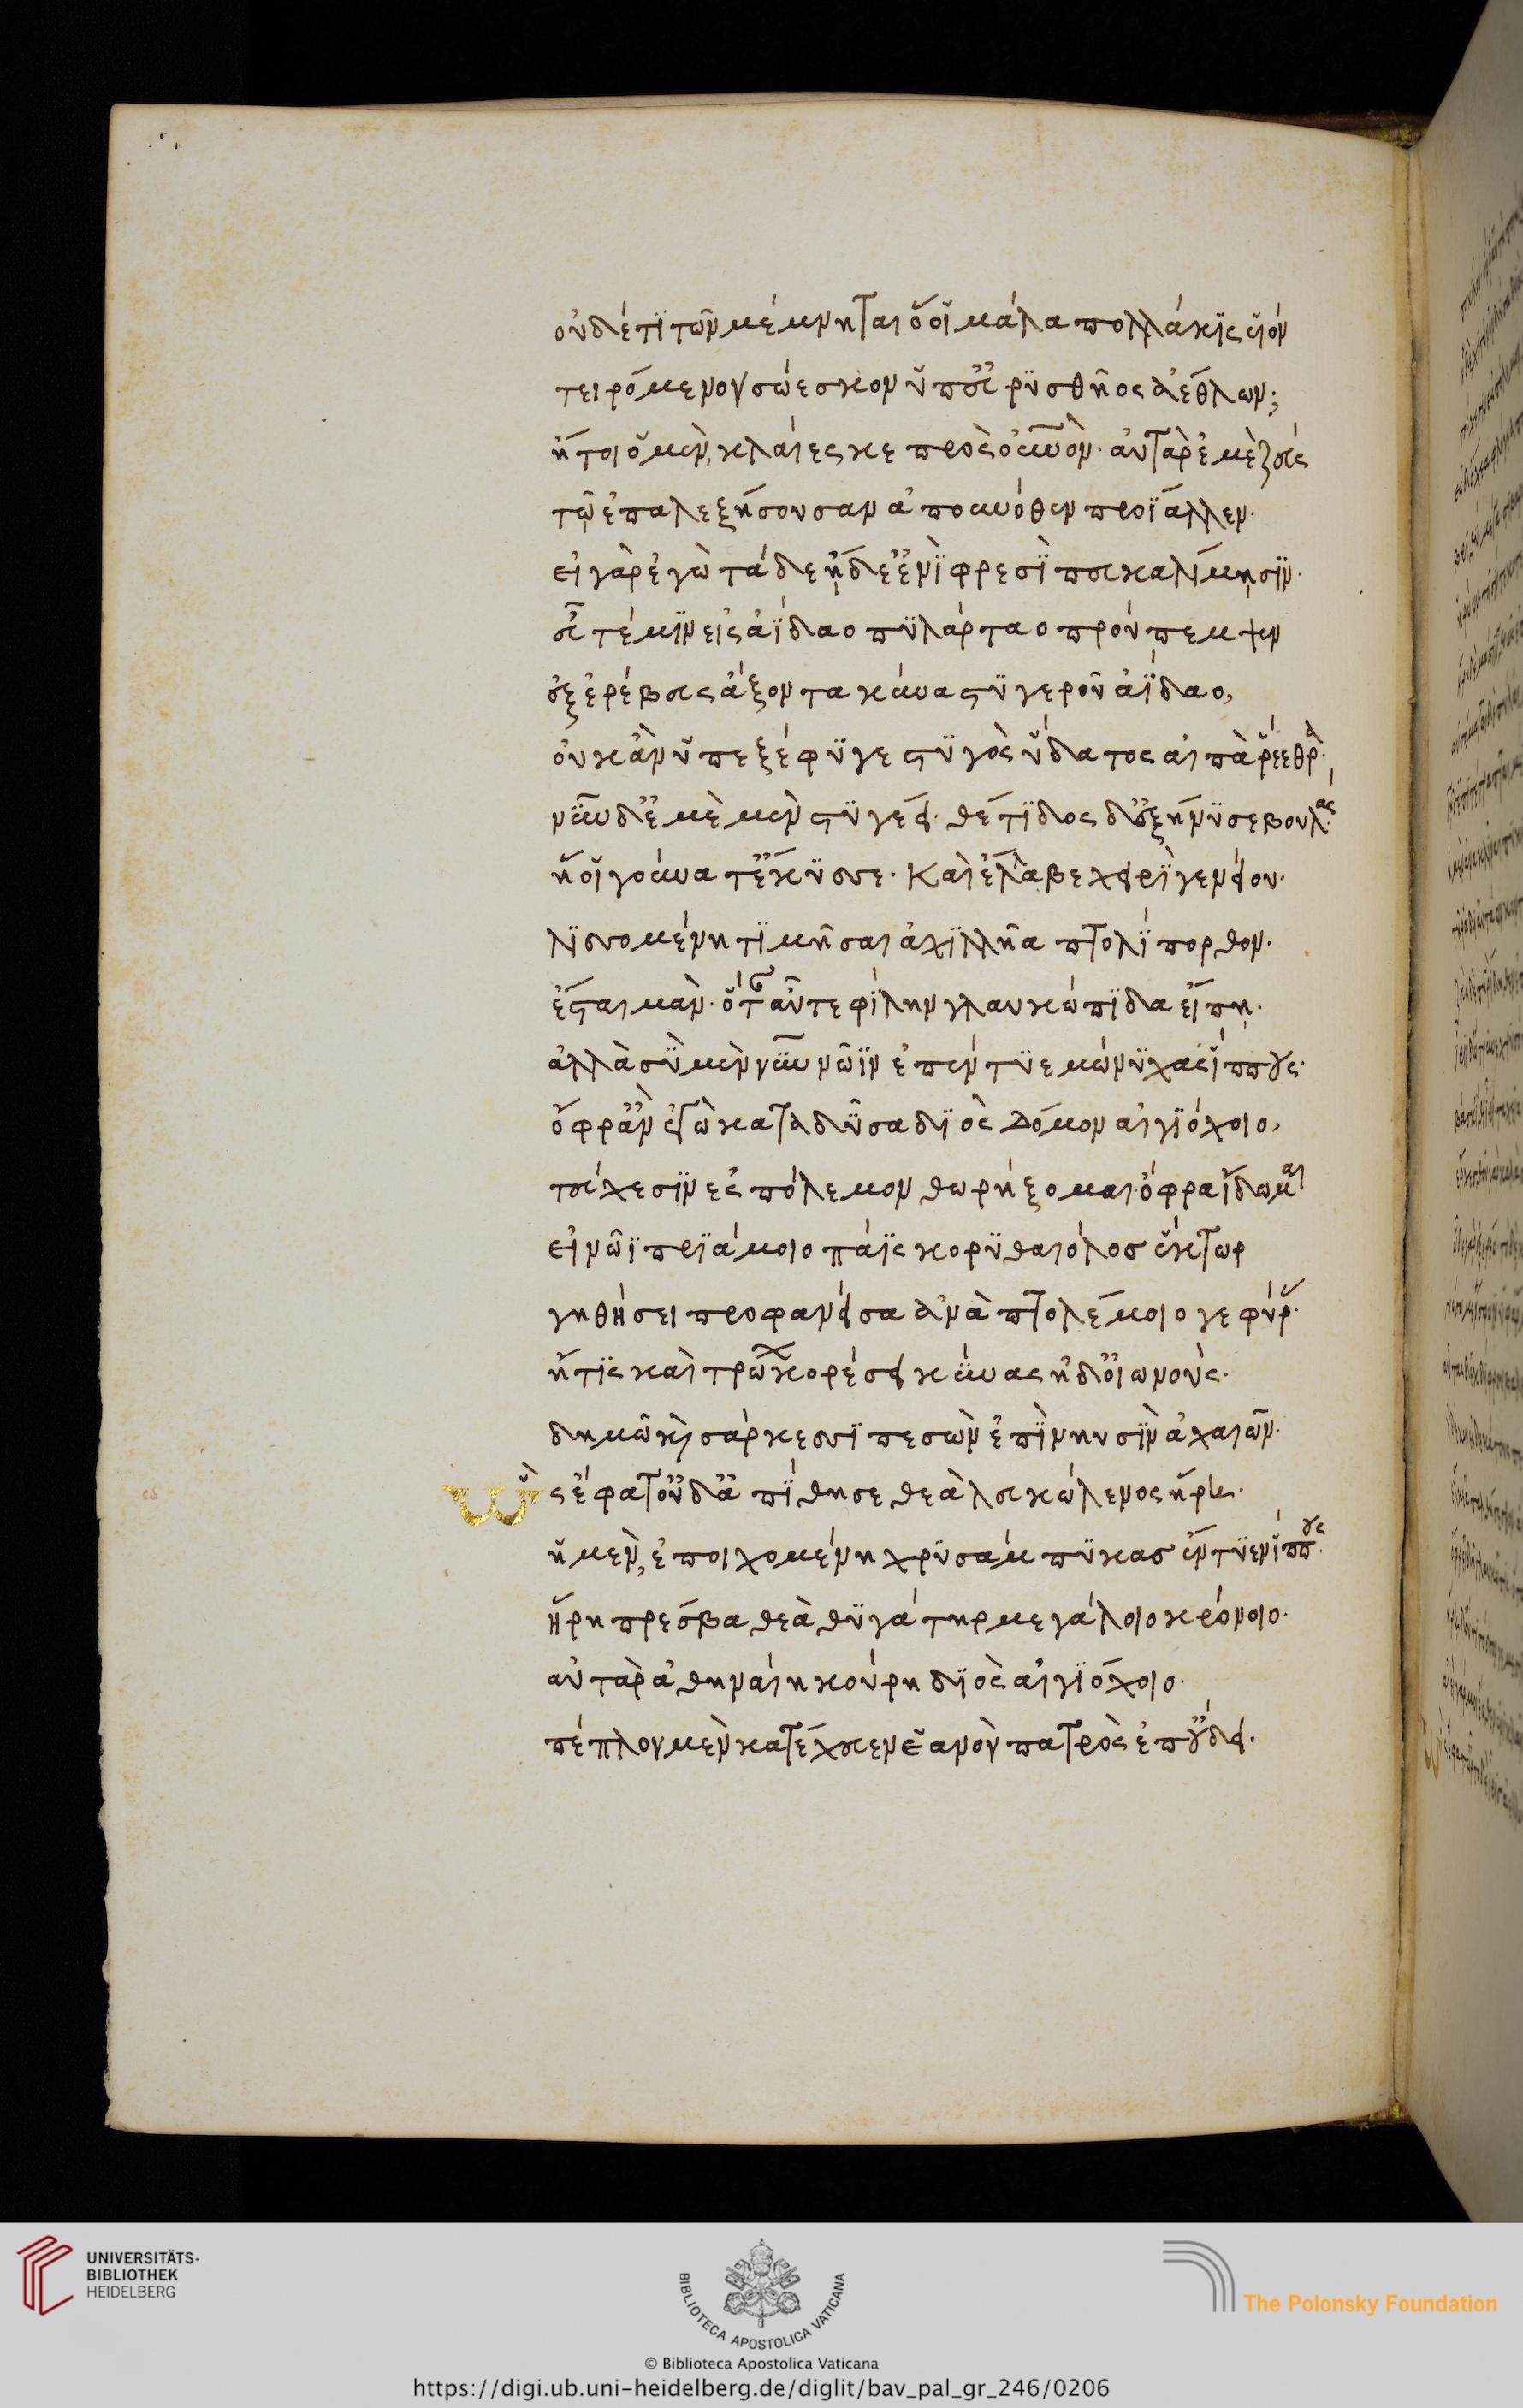 οὐδέ τι τῶν μέμνηται ὅ οἱ μάλα πολλάκις υἱὸν
τειρόμενον σώεσκον ὑπ' εὐρυσθῆος ἀέθλων;
ἤτοι ὁ μὲν, κλαίεσκε πρὸς οὐρανὸν· αὐτὰρ ἐμὲ ζεὺς
τῶ ἐπαλεξήσουσαν ἀπουρανόθεν προΐαλλεν.
εἰ γὰρ ἐγὼ τάδε ἤδε' ἐνὶ φρεσὶ πευκαλίμησιν·
εὖτέ μιν εἰς ἀΐδαο πυλάρταο προύπεμψεν
ἐξ ἐρέβευς ἄξοντα κύνα στυγεροῦ ἀΐδαο,
οὐκ ἂν ὑπεξέφυγε στυγὸς ὕδατος αἰπὰ ῥέεθρα·
νῦν δ' ἐμὲ μὲν στυγέει· θέτιδος δ' ἐξήνυσε βουλάς·
ἥ οἱ γούνατ' ἔκυσσε· Καὶ ἔλλαβε χειρὶ γενείου·
λισσομένη τιμῆσαι ἀχιλλῆα πτολίπορθον·
ἔσται μὰν· ὅτ' ἂν αὖτε φίλην γλαυκώπιδα εἴπη·
ἀλλὰ σὺ μὲν νῦν νῶϊν ἐπέντυε μώνυχας ἵππους·
ὄφρ' ἂν ἐγὼ καταδῦσα διὸς Δόμον αἰγιόχοιο,
τεύχεσιν ἐς πόλεμον θωρήξομαι· ὄφρα ἴδωμαι
εἰ νῶϊ πριάμοιο πάϊς κορυθαιόλοσ ἕκτωρ
γηθήσει προφανεῖσα ἀνὰ πτολέμοιο γεφύρας·
ἦ τις καὶ τρώων κορέσει κύνας ἠδ' οἰωνοὺς·
δημῶ καὶ σάρκεσσι πεσὼν ἐπὶ νηυσὶν ἀχαιῶν·
Ὣς ἔφατ' οὐδ' ἀπίθησε θεὰ λευκώλενος ἥρη·
ἡ μὲν, ἐποιχομένη χρυσάμπυκασ ἔντυεν ἵππους·
ἥρη πρέσβα θεὰ θυγάτηρ μεγάλοιο κρόνοιο·
αὐτὰρ ἀθηναίη κούρη διὸς αἰγιόχοιο·
πέπλον μὲν κατέχευεν ἑανὸν πατρὸς ἐπ' οὔδει·
UNIVERSITÄTS-
BIBLIOTHEK
HEIDELBERG
BIBLIOTECA APOSTOLICA VATICANA
The Polonsky Foundation
© Biblioteca Apostolica Vaticana
https://digi.ub.uni-heidelberg.de/diglit/bav_pal_gr_246/0206